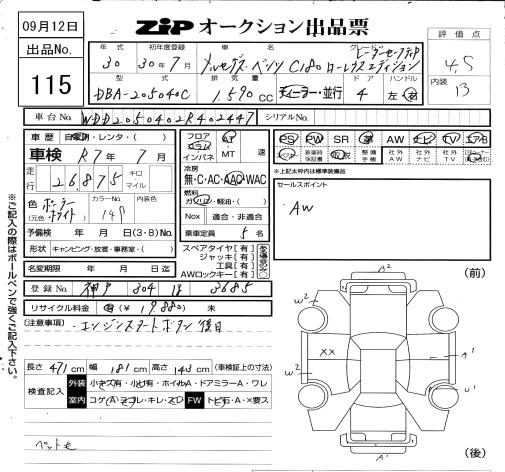 09月12日
ZIP オークション出品票
出品No.
115
評価点
4.5
内装
B
年式 初年度登録 車名 グレード
30 30年7月 メルセデス・ベンツ C180 ローレウスエディション
レーダーセーフティP
型式 排気量 ドア ハンドル
DBA-205040C 1,590cc ディーラー・並行 4 左・右
車台No. WDD2050402R402447 シリアルNo.
車歴 自家用・レンタ・( )
車検 R7年7月
走行 26,875 キロ マイル
色 ポーラーホワイト
(元色 )
カラーNo. 149
内装色
予備検 年 月 日(3・8)No.
形状 キャンピング・放置・事務室・( )
名変期限 年 月 日迄
フロア AT
コラム
インパネ MT 速
冷房
無・C・AC・AAC・WAC
燃料
ガソリン・軽油・( )
Nox 適合・非適合
乗車定員 5名
スペアタイヤ[有]
ジャッキ[有]
工具[有]
AWロックキー[有]
PS PW SR 革 AW ナビ TV エアB
新車時保証書 取説 整備手帳 社外AW 社外ナビ 社外TV
*上記太枠内は標準装備品
セールスポイント
AW
登録No. 神戸 304 3685
リサイクル料金 有 (¥19,880) 未
(注意事項) エンジンスタートボタン後日
長さ 471cm 幅 181cm 高さ 143cm (車検証上の寸法)
検査記入 外装 小キズ有・小凹有・ホイルA・ドアミラーA・ワレ
室内 コゲA・ヨゴレ・キレ・スレ FW トビ石・A・×要ス
ペット毛
※ご記入の際はボールペンで強くご記入下さい。
(前)
A2
W2
XX
W2
A1
U1
A1
(後)